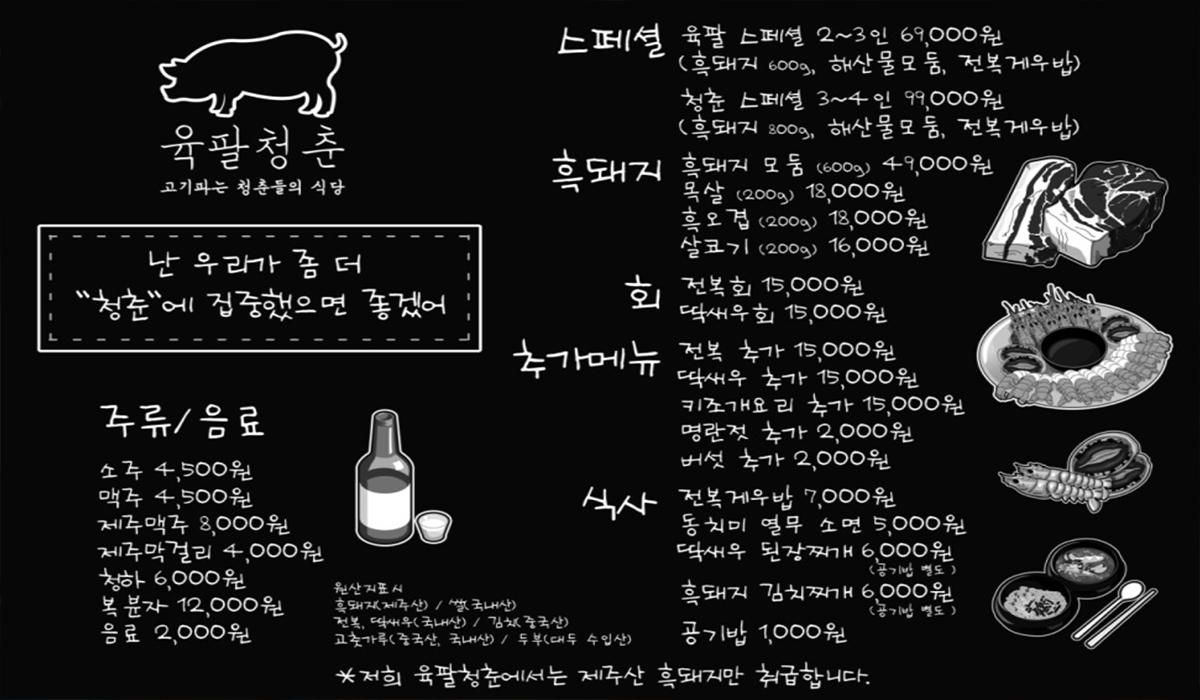 육팔청춘
고기파는 청춘들의 식당
난 우리가 좀 더
"청춘"에 집중했으면 좋겠어
주류/음료
소주 4,500원
맥주 4,500원
제주맥주 8,000원
제주막걸리 4,000원
청하 6,000원
복분자 12,000원
음료 2,000원
원산지표시
흑돼지(제주산) / 쌀(국내산)
전복, 딱새우(국내산) / 김치(중국산)
고춧가루(중국산, 국내산) / 두부(대두 수입산)
스페셜
육팔 스페셜 2~3인 69,000원
(흑돼지 600g, 해산물모둠, 전복게우밥)
청춘 스페셜 3~4인 99,000원
(흑돼지 800g, 해산물모둠, 전복게우밥)
흑돼지
흑돼지 모둠 (600g) 49,000원
목살 (200g) 18,000원
흑오겹 (200g) 18,000원
살코기 (200g) 16,000원
회
전복회 15,000원
딱새우회 15,000원
추가메뉴
전복 추가 15,000원
딱새우 추가 15,000원
키조개요리 추가 15,000원
명란젓 추가 2,000원
버섯 추가 2,000원
식사
전복게우밥 7,000원
동치미 열무 소면 5,000원
딱새우 된장찌개 6,000원
(공기밥 별도)
흑돼지 김치찌개 6,000원
(공기밥 별도)
공기밥 1,000원
*저희 육팔청춘에서는 제주산 흑돼지만 취급합니다.